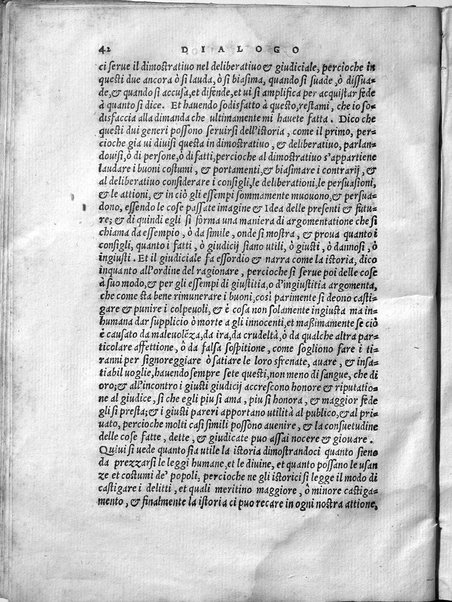 42 DIALOGO
ci serue il dimostratiuo nel deliberatiuo & giudiciale, percioche in
questi due ancora ò si lauda, ò si biasima, quando si suade, ò dissua-
de, & quando si accusa, et difende, et ui si amplifica per acquistar fede
à quanto si dice. Et hauendo sodisfatto à questo, restami, che io so-
disfaccia alla dimanda che ultimamente mi hauete fatta. Dico che
questi dui generi possono seruirsi dell'istoria, come il primo, per-
cioche gia ui diuisi questa in dimostratiuo, & deliberatiuo, parlan-
douisi, ò di persone, ò di fatti, percioche al dimostratiuo s'appartiene
laudare i buoni costumi, & portamenti, & biasimare i contrarij, &
al deliberatiuo considerare i consigli, le deliberationi, le persuasioni,
& le attioni, & in ciò gli essempi sommamente muouono, & persua-
dono, essendo le cose passate imagine & Idea delle presenti & futu-
re; & di quindi egli si forma una maniera di argomentatione che si
chiama da essempio, ò da simile, onde si mostra, & proua quanto i
consigli, quanto i fatti, ò giudicij siano utili, ò giusti, ò dannosi, ò
ingiusti. Et il giudiciale fa essordio & narra come la istoria, dico
inquanto all'ordine del ragionare, percioche si serue poi delle cose
à suo modo, & per gli essempi di giustitia, o d'ingiustitia argomenta,
che come sta bene rimunerare i buoni, così parimente si deono casti-
gare & punire i colpeuoli, & è cosa non solamente ingiusta ma in-
humana dar supplicio ò morte a gli innocenti, et maßimamente se ciò
è causato da maleuolēza, da ira, da crudeltà, ò da qualche altra par-
ticolare affettione, ò da falsa sospitione, come sogliono fare i ti-
ranni per signoreggiare ò satiare le loro sfrenate, auare, & insa-
tiabil uoglie, hauendo sempre sete questi, non meno di sangue, che di
oro; & all'incontro i giusti giudicij accrescono honore & riputatio-
ne al giudice, sì che egli piu si ama, piu si honora, & maggior fede
gli si presta; & i giusti pareri apportano utilità al publico, & al pri-
uato, percioche molti casi simili possono auenire, & la consuetudine
delle cose fatte, dette, & giudicate puo assai nocere & giouare.
Quiui si uede quanto sia utile la istoria dimostrandoci quanto sieno
da prezzarsi le leggi humane, et le diuine, et quanto possano le usan
ze et costumi de' popoli, percioche ne gli istorici si legge il modo di
castigare i delitti, et quali meritino maggiore, ò minore castiga-
mento, & finalmente la istoria ci puo recare in ogni nostra attione,